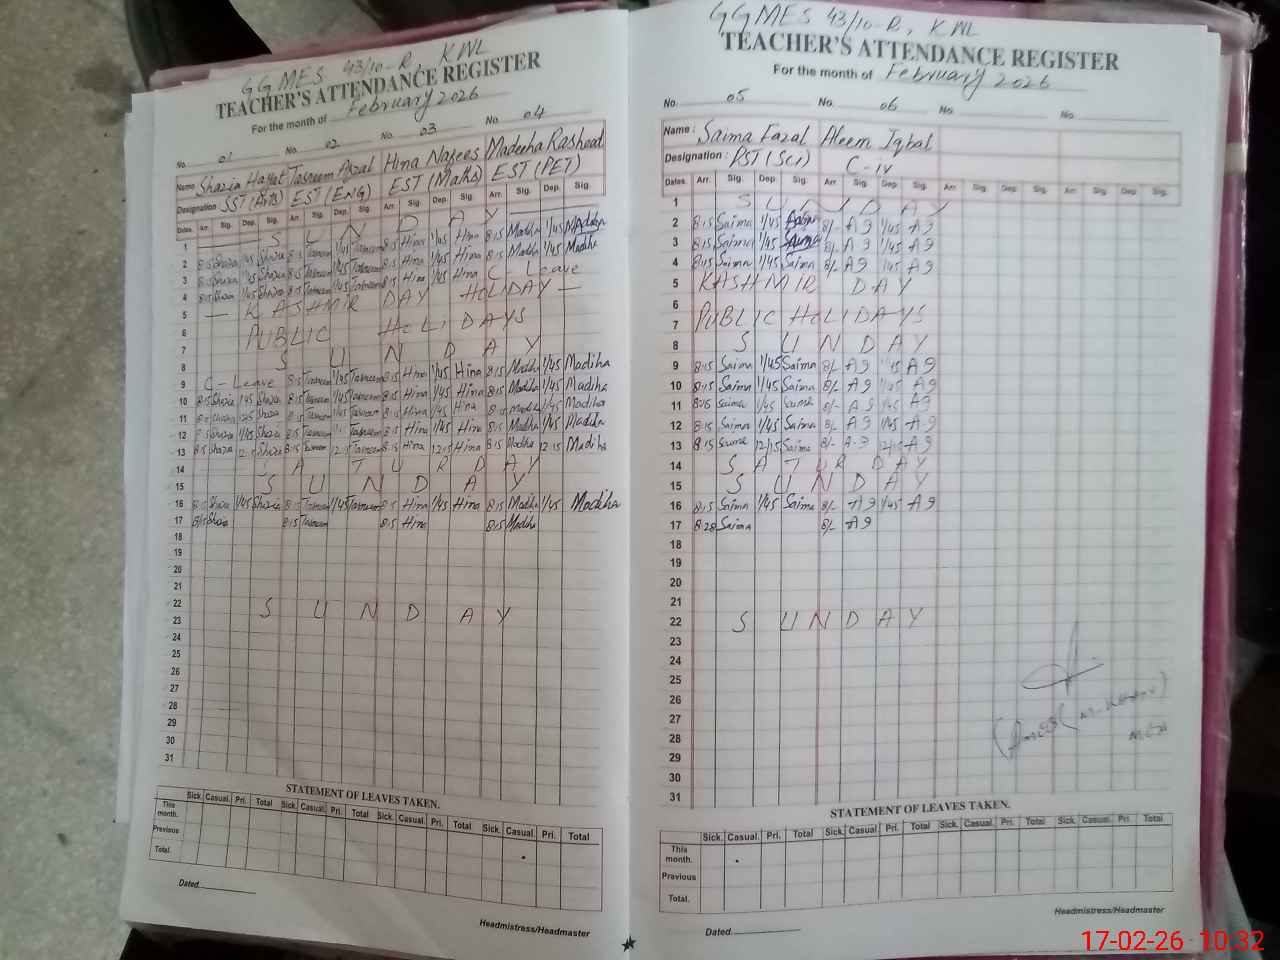 GGMES 43/10-R, KWL
TEACHER'S ATTENDANCE REGISTER
For the month of February 2026
No. 01 No. 02 No. 03 No. 04
Name Shazia Hayat Tasneem Afzal Hina Nafees Madeeha Rasheed
Designation SST (Arts) EST (ENG) EST (Maths) EST (PET)
Dates Arr. Sig. Dep. Sig. Arr. Sig. Dep. Sig. Arr. Sig. Dep. Sig. Arr. Sig. Dep. Sig.
1 S U N D A Y
2 8:15 Shazia 1/45 Shazia 8:15 Tasneem 1/45 Tasneem 8:15 Hina 1/45 Hina 8:15 Madiha 1/45 Madiha
3 8:15 Shazia 1/45 Shazia 8:15 Tasneem 1/45 Tasneem 8:15 Hina 1/45 Hina 8:15 Madiha 1/45 Madiha
4 8:15 Shazia 1/45 Shazia 8:15 Tasneem 1/45 Tasneem 8:15 Hina 1/45 Hina C- Leave
5 — KASHMIR DAY HOLIDAY —
6 PUBLIC HOLIDAYS
7
8 S U N D A Y
9 C- Leave 8:15 Tasneem 1/45 Tasneem 8:15 Hina 1/45 Hina 8:15 Madiha 1/45 Madiha
10 8:15 Shazia 1/45 Shazia 8:15 Tasneem 1/45 Tasneem 8:15 Hina 1/45 Hina 8:15 Madiha 1/45 Madiha
11 8:15 Shazia 1:45 Shazia 8:15 Tasneem 1/45 Tasneem 8:15 Hina 1/45 Hina 8:15 Madiha 1/45 Madiha
12 8:15 Shazia 1/45 Shazia 8:15 Tasneem Tasneem 8:15 Hina 1/45 Hina 8:15 Madiha 1/45 Madiha
13 8:15 Shazia 12:15 Shazia 8:15 Tasneem 12:15 Tasneem 8:15 Hina 12:15 Hina 8:15 Madiha 12:15 Madiha
14 S A T U R D A Y
15 S U N D A Y
16 8:15 Shazia 1/45 Shazia 8:15 Tasneem 1/45 Tasneem 8:15 Hina 1/45 Hina 8:15 Madiha 1/45 Madiha
17 8/15 Shazia 8:15 Tasneem 8:15 Hina 8:15 Madiha
18
19
20
21
22 S U N D A Y
23
24
25
26
27
28
29
30
31
STATEMENT OF LEAVES TAKEN.
Sick. Casual. Pri. Total Sick. Casual. Pri. Total Sick. Casual. Pri. Total Sick. Casual. Pri. Total
This month.
Previous
Total.
Dated
Headmistress/Headmaster
GGMES 43/10-R, KWL
TEACHER'S ATTENDANCE REGISTER
For the month of February 2026
No. 05 No. 06 No. No.
Name : Saima Fazal Aleem Iqbal
Designation : PST (Sci) C-iv
Dates. Arr. Sig. Dep. Sig. Arr. Sig. Dep. Sig. Arr. Sig. Dep. Sig. Arr. Sig. Dep. Sig.
1 S U N D A Y
2 8:15 Saima 1/45 Saima 8/- A9 1/45 A9
3 8:15 Saima 1/45 Saima 8/- A9 1/45 A9
4 8:15 Saima 1/45 Saima 8/- A9 1:45 A9
5 KASHMIR DAY
6
7 PUBLIC HOLIDAYS
8 S U N D A Y
9 8:15 Saima 1/45 Saima 8/- A9 1:45 A9
10 8:15 Saima 1/45 Saima 8/- A9 1:45 A9
11 8:15 Saima 1/45 Saima 8/- A9 1/45 A9
12 8:15 Saima 1/45 Saima 8/- A9 1/45 A9
13 8:15 Saima 12/15 Saima 8/- A9 12/15 A9
14 S A T U R D A Y
15 S U N D A Y
16 8:15 Saima 1/45 Saima 8/- A9 1/45 A9
17 8:28 Saima 8/- A9
18
19
20
21
22 S U N D A Y
23
24
25
26
27
28
29
30
31
STATEMENT OF LEAVES TAKEN.
Sick. Casual. Pri. Total Sick. Casual Pri. Total Sick. Casual. Pri. Total Sick. Casual. Pri. Total
This month.
Previous
Total.
Dated
Headmistress/Headmaster
17-02-26 10:32